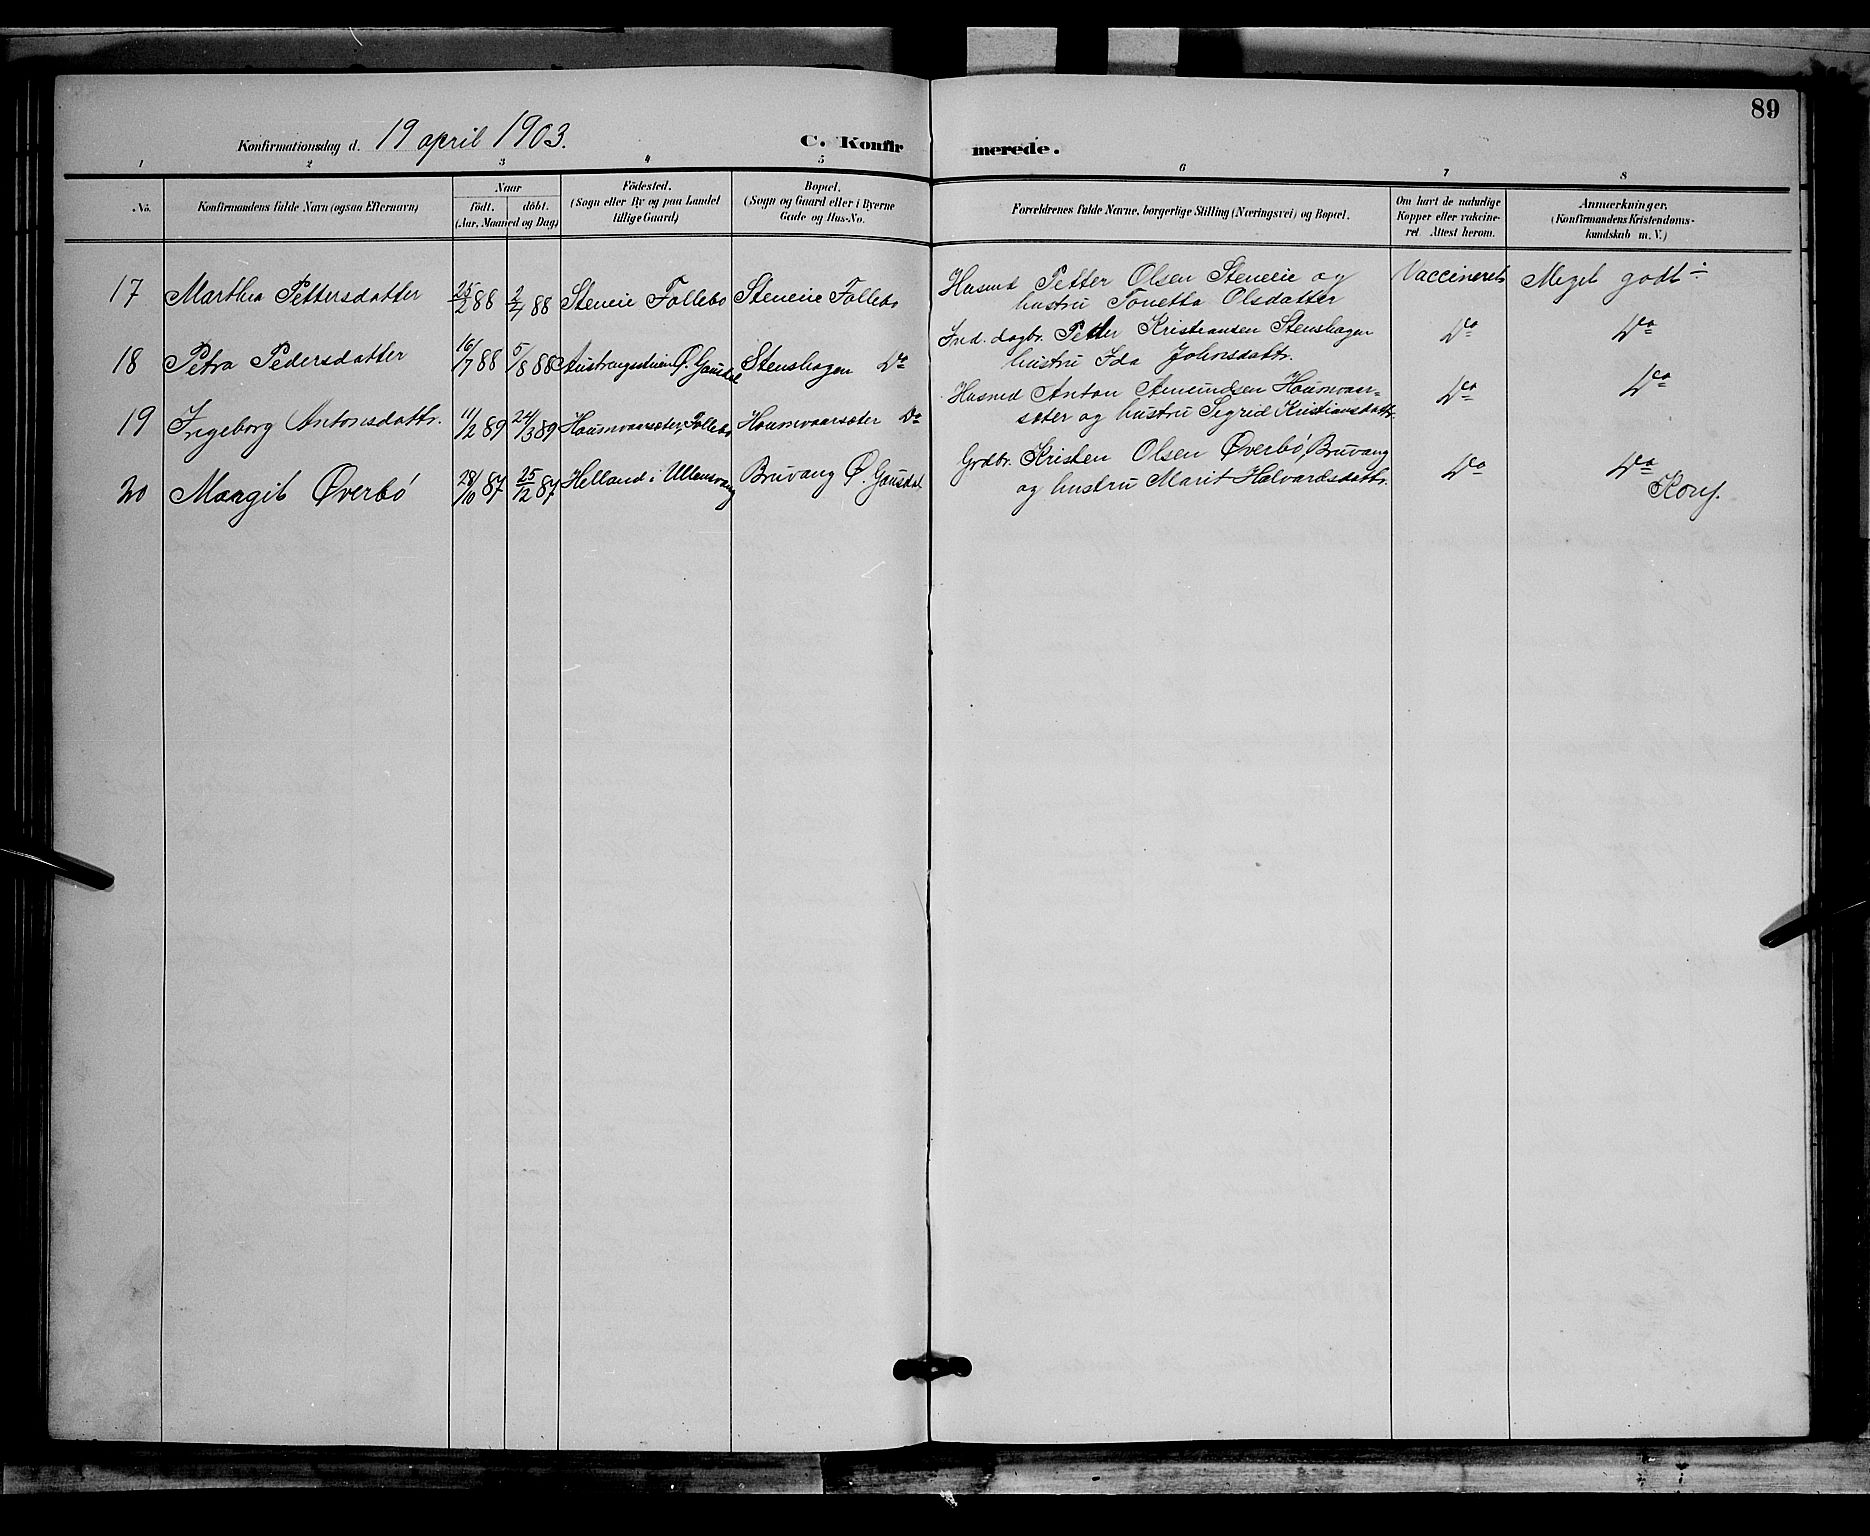 89
Konfirmationsdag d. 19 april 1903.
C. Konfirmerede.
1 2 3 4 5 6 7 8
No.
Konfirmandens fulde Navn (ogsaa Efternavn)
Naar
født. døbt.
(Aar, Maaned og Dag)
Födested.
(Sogn eller By og paa Landet
tillige Gaard)
Bopæl.
(Sogn og Gaard eller i Byerne
Gade og Hus-No.
Forældrenes fulde Navne, borgerlige Stilling (Næringsvei) og Bopæl.
Om havt de naturlige
Kopper eller vakcine-
ret. Attest herom.
Anmærkninger.
(Konfirmandens Kristendoms-
kundskab m. V.)
17 Marthea Pettersdatter 25/2 88 2/4 88 Steneie Follebo Steneie Follebo Husmd Petter Olsen Steneie og
hustru Tonetta Olsdatter Vaccineret Meget godt ÷
18 Petra Pedersdatter 16/7 88 5/8 88 Ø. Gausdal Stenshagen Do Ind. dagbr. Peder Kristiansen Stenshagen
hustru Ida Johnsdattr. Do Do
19 Ingeborg Antonsdattr. 11/2 89 24/3 89 Houmvaarsæter, Follebo Houmvaarsæter Do Husmd Anton Amundsen Houmvaar-
sæter og hustru Sigrid Kristiansdattr. Do Do
20 Margit Øverbø 28/10 87 25/12 87 Helland i Ullensvang Bruvang Ø. Gausdal Grdbr. Kristen Olsen Øverbø, Bruvang
og hustru Marit Halvardsdattr. Do Do